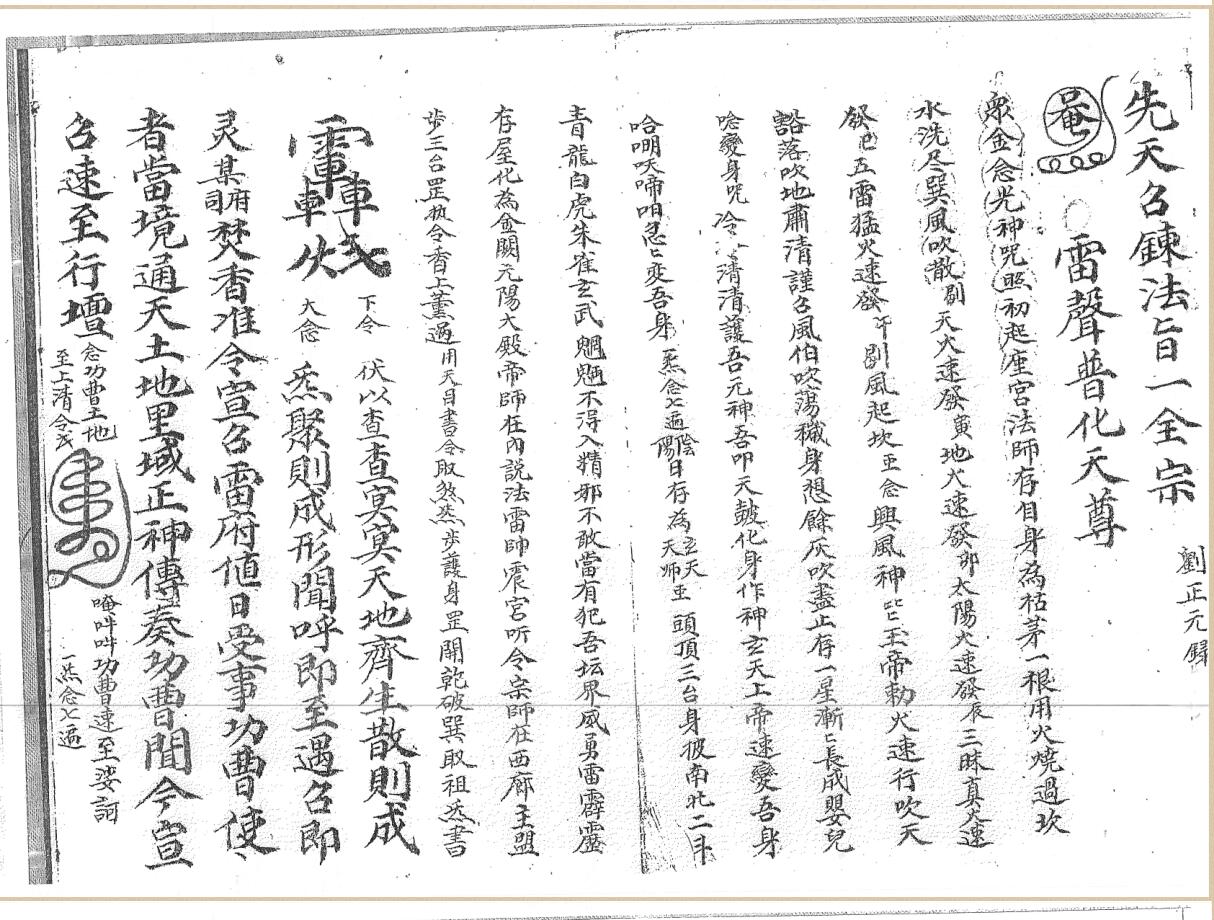 先天召鍊法旨一全宗
劉正元録
雷聲普化天尊
眾金念光神咒照初起座宮法師存自身為枯茅一根用火燒過坎
水洗尽巽風吹散剔天火速發寅地火速發卯太陽火速發辰三昧真火速
發巳五雷猛火速發午剔風起坎亚念興風神咒玉帝勅火速行吹天
豁落吹地肅清謹召風伯吹蕩穢身想餘灰吹盡止存一星漸〻長成嬰兒
唸變身咒冷〻清清護吾元神吾叩天皷化身作神玄天上帝速變吾身
哈唎吠啼呬急〻变吾身炁念七遍陰陽日存為玄天天师亚頭頂三台身披南北二斗
青龍白虎朱雀玄武魍魎不淂入精邪不敢當有犯吾坛界威勇雷霹靂
存屋化為金闕元陽大殿帝師在內説法雷師震宮听令宗師在西廊主盟
步三台罡执令香上薰過用天目書令取煞炁步護身罡開乾破巽取祖炁書
下令伏以查查冥冥天地齊生散則成
大念炁聚則成形聞呼即至遇召即
灵某府司焚香准令宣召雷府值日受事功曹使〻
者當境通天土地里域正神傳奏功曹聞今宣
召速至行壇念功曹土地至上清令式
唵吽吽功曹速至娑訶一炁念七遍